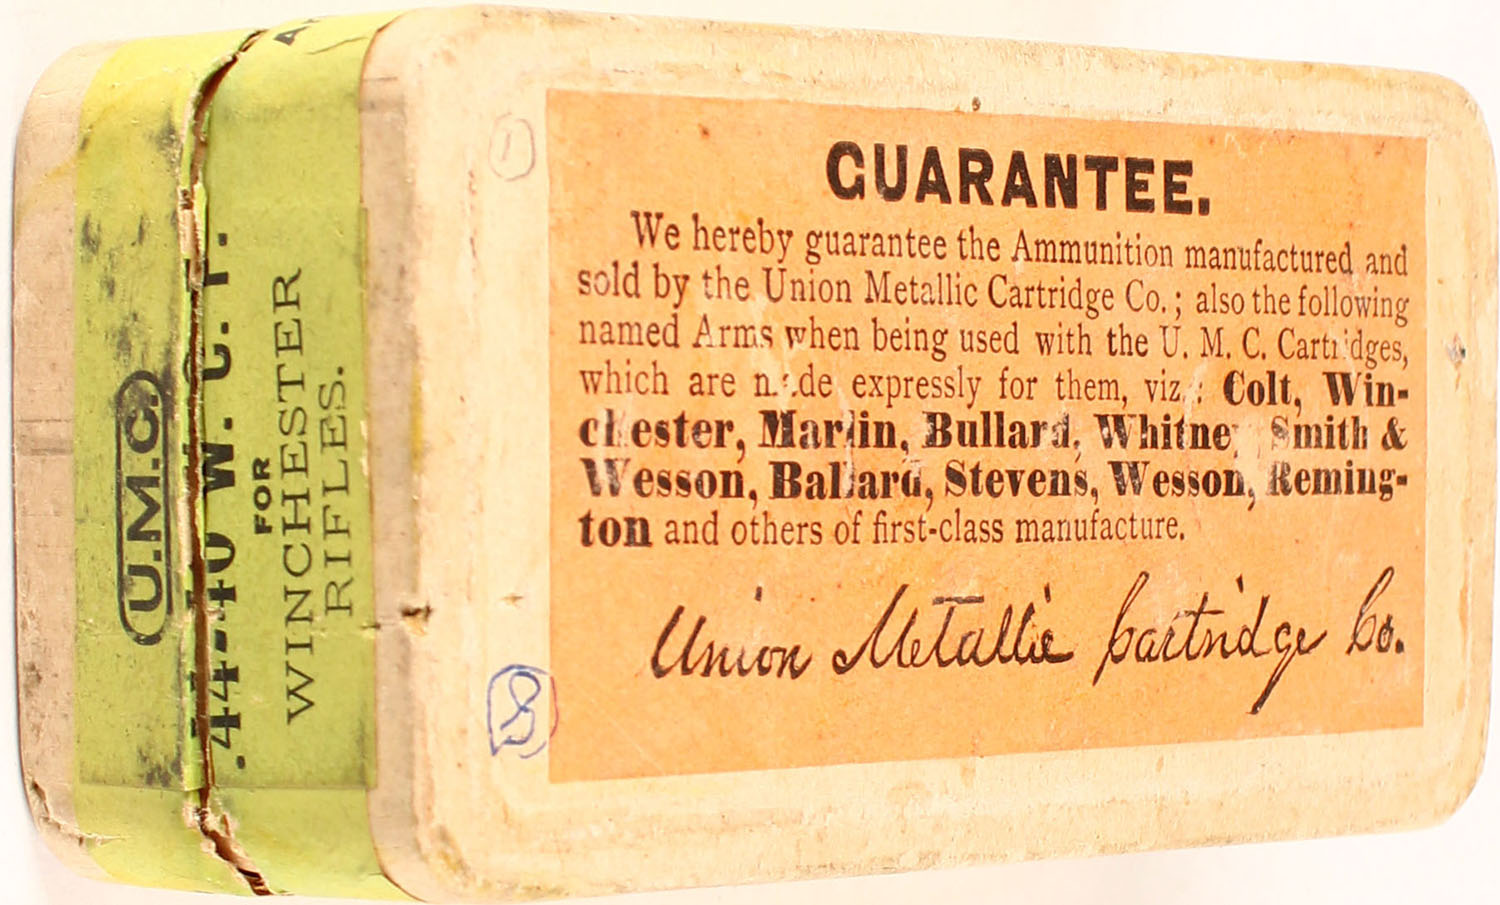 GUARANTEE.
We hereby guarantee the Ammunition manufactured and
sold by the Union Metallic Cartridge Co.; also the following
named Arms when being used with the U. M. C. Cartridges,
which are made expressly for them, viz.: Colt, Win-
chester, Marlin, Bullard, Whitney, Smith &
Wesson, Ballard, Stevens, Wesson, Reming-
ton and others of first-class manufacture.
Union Metallic Cartridge Co.
U.M.C.
.44-40 W. C. F.
FOR
WINCHESTER
RIFLES.
1